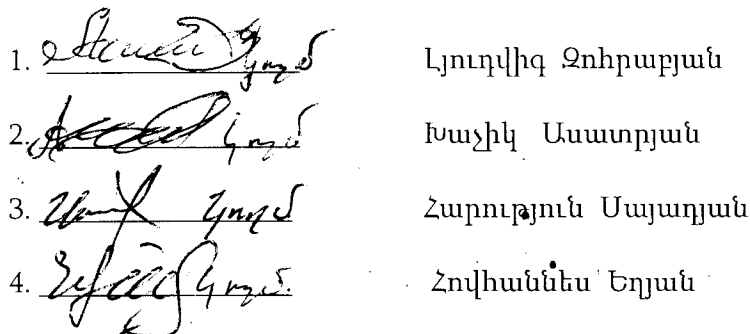 1. կողմ Լյուդվիգ Զոհրաբյան
2. կողմ Խաչիկ Ասատրյան
3. կողմ Հարություն Սայադյան
4. կողմ. Հովհաննես Եղյան